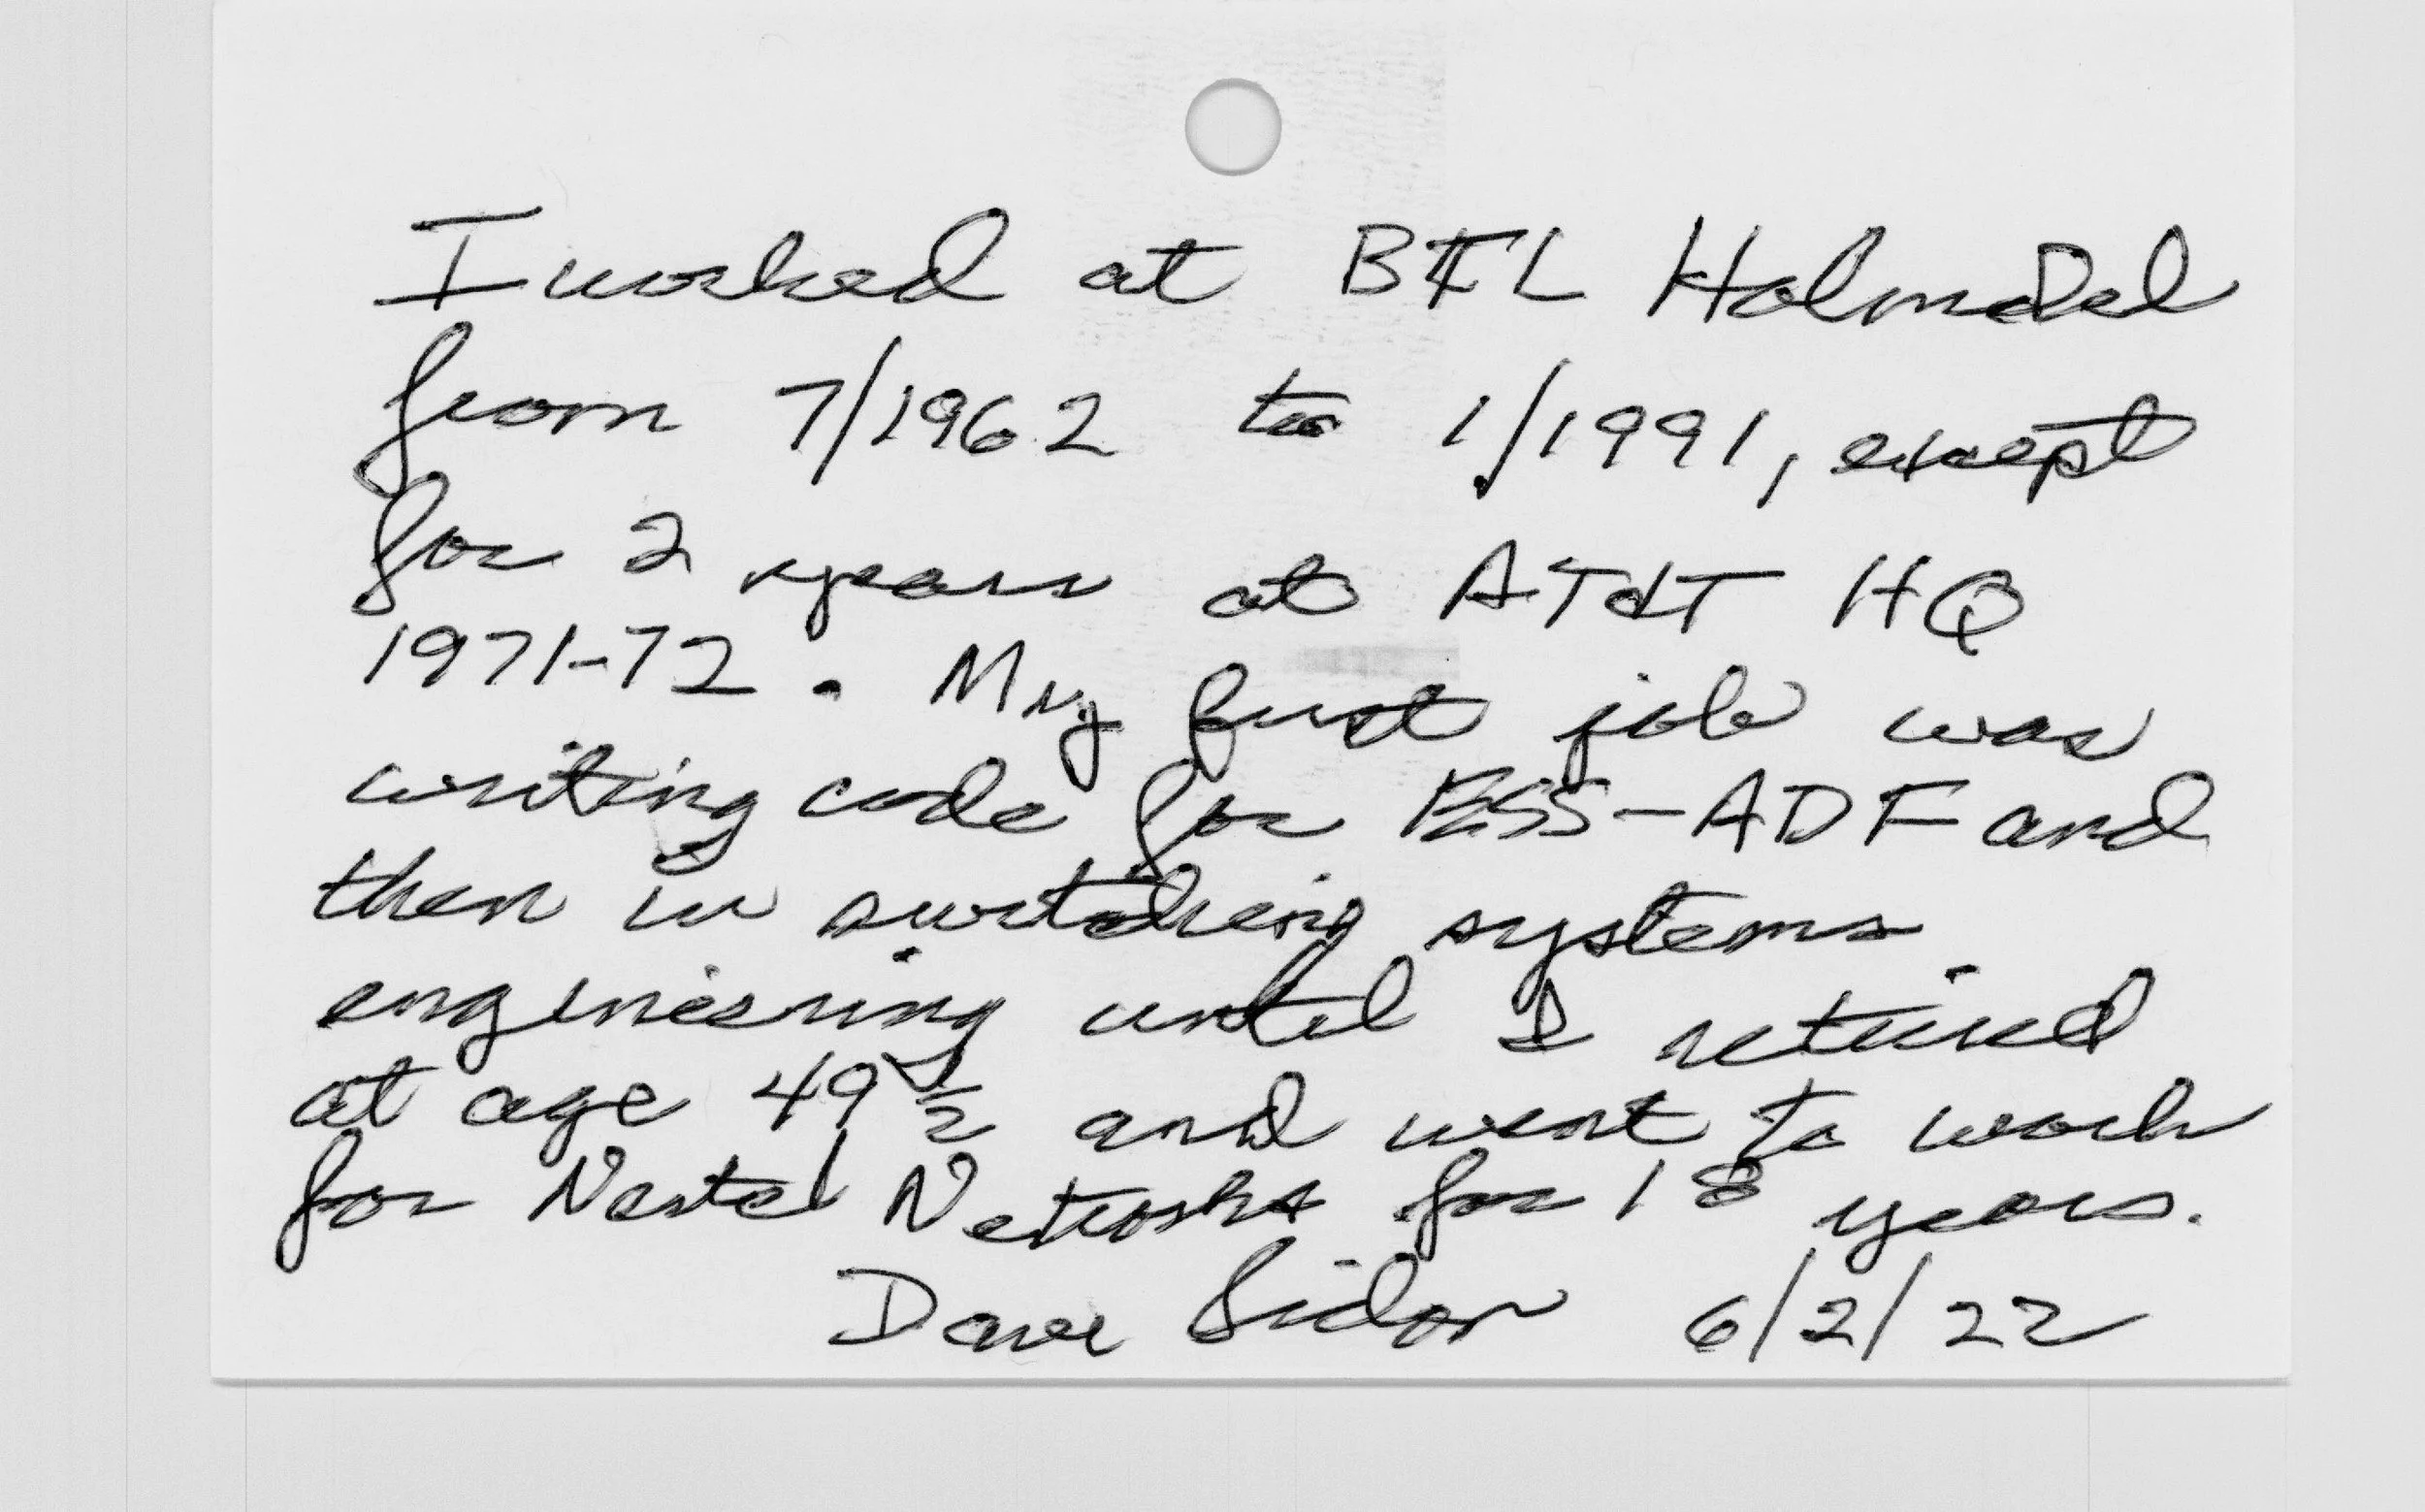 I worked at BTL Holmdel
from 7/1962 to 1/1991, except
for 2 years at AT&T HQ
1971-72. My first job was
writing code for ESS-ADF and
then in switching systems
engineering until I retired
at age 49 1/2 and went to work
for Nortel Networks for 18 years.
Dave Sidor 6/2/22